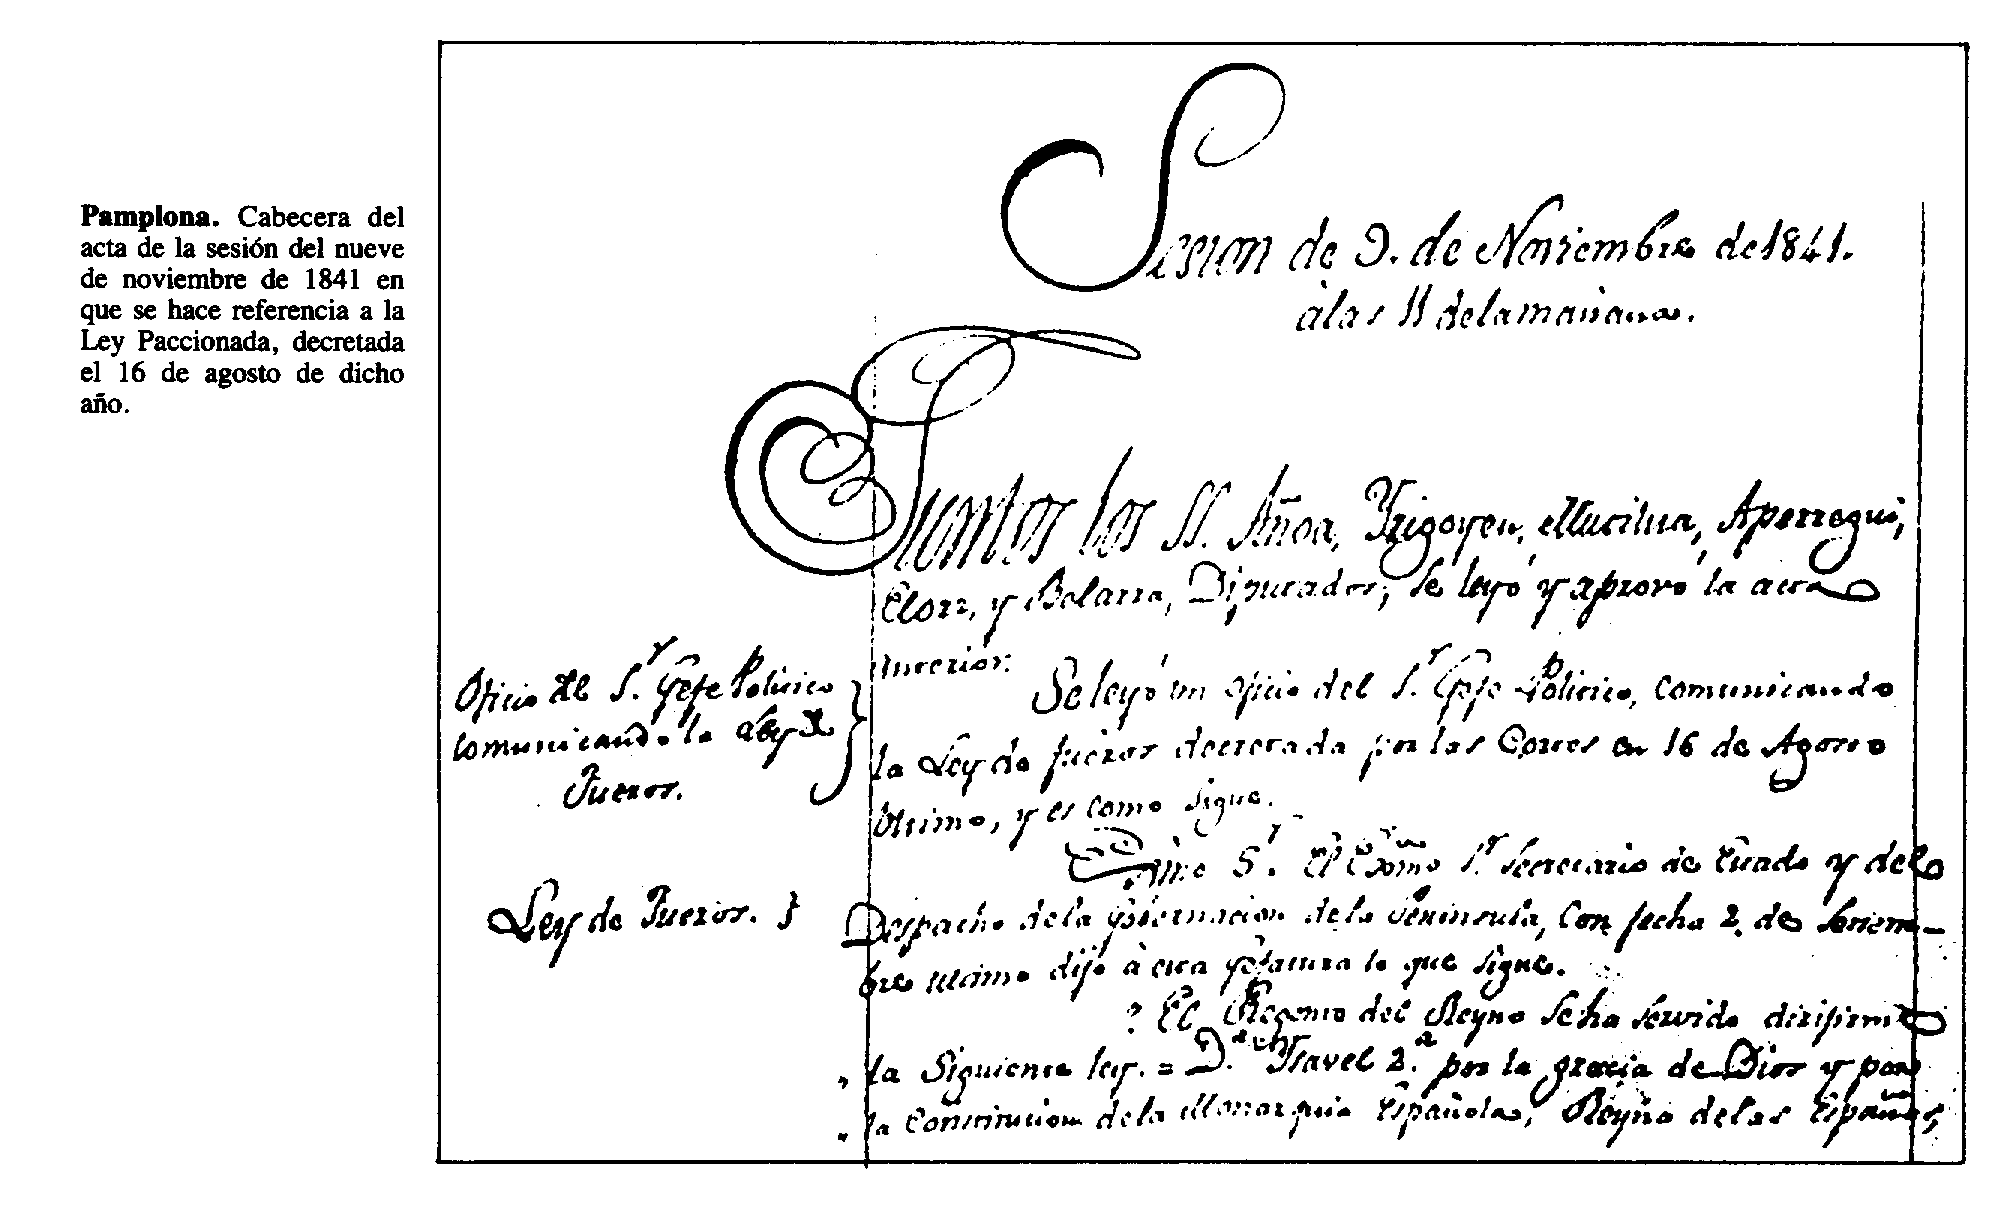 Pamplona. Cabecera del
acta de la sesión del nueve
de noviembre de 1841 en
que se hace referencia a la
Ley Paccionada, decretada
el 16 de agosto de dicho
año.
Sesion de 9. de Noviembre de 1841.
à las 11 de la mañana.
Juntos los SS. Añoa, Yrigoyen, Mutilua, Aperregui,
Elorz, y Bolarra, Diputados, se leyó y aprovó la acta
anterior.
Oficio del S.r Gefe Politico
comunicando la Ley de
Fueros.
Se leyó un oficio del S.r Gefe Politico, comunicando
la Ley de fueros decretada por las Cortes en 16 de Agosto
último, y es como sigue.
Ley de Fueros.
S.r El Exmo S.r Secretario de Estado y del
Despacho de la Gobernacion de la Peninsula, con fecha 2. de Setiem-
bre ultimo dijo à esta Gefatura lo que sigue.
El Regente del Reyno se ha servido dirigirme
" la siguiente ley. = D.ª Ysavel 2.ª por la gracia de Dios y por
" la Constitucion de la Monarquia Española, Reyna de las Españas,